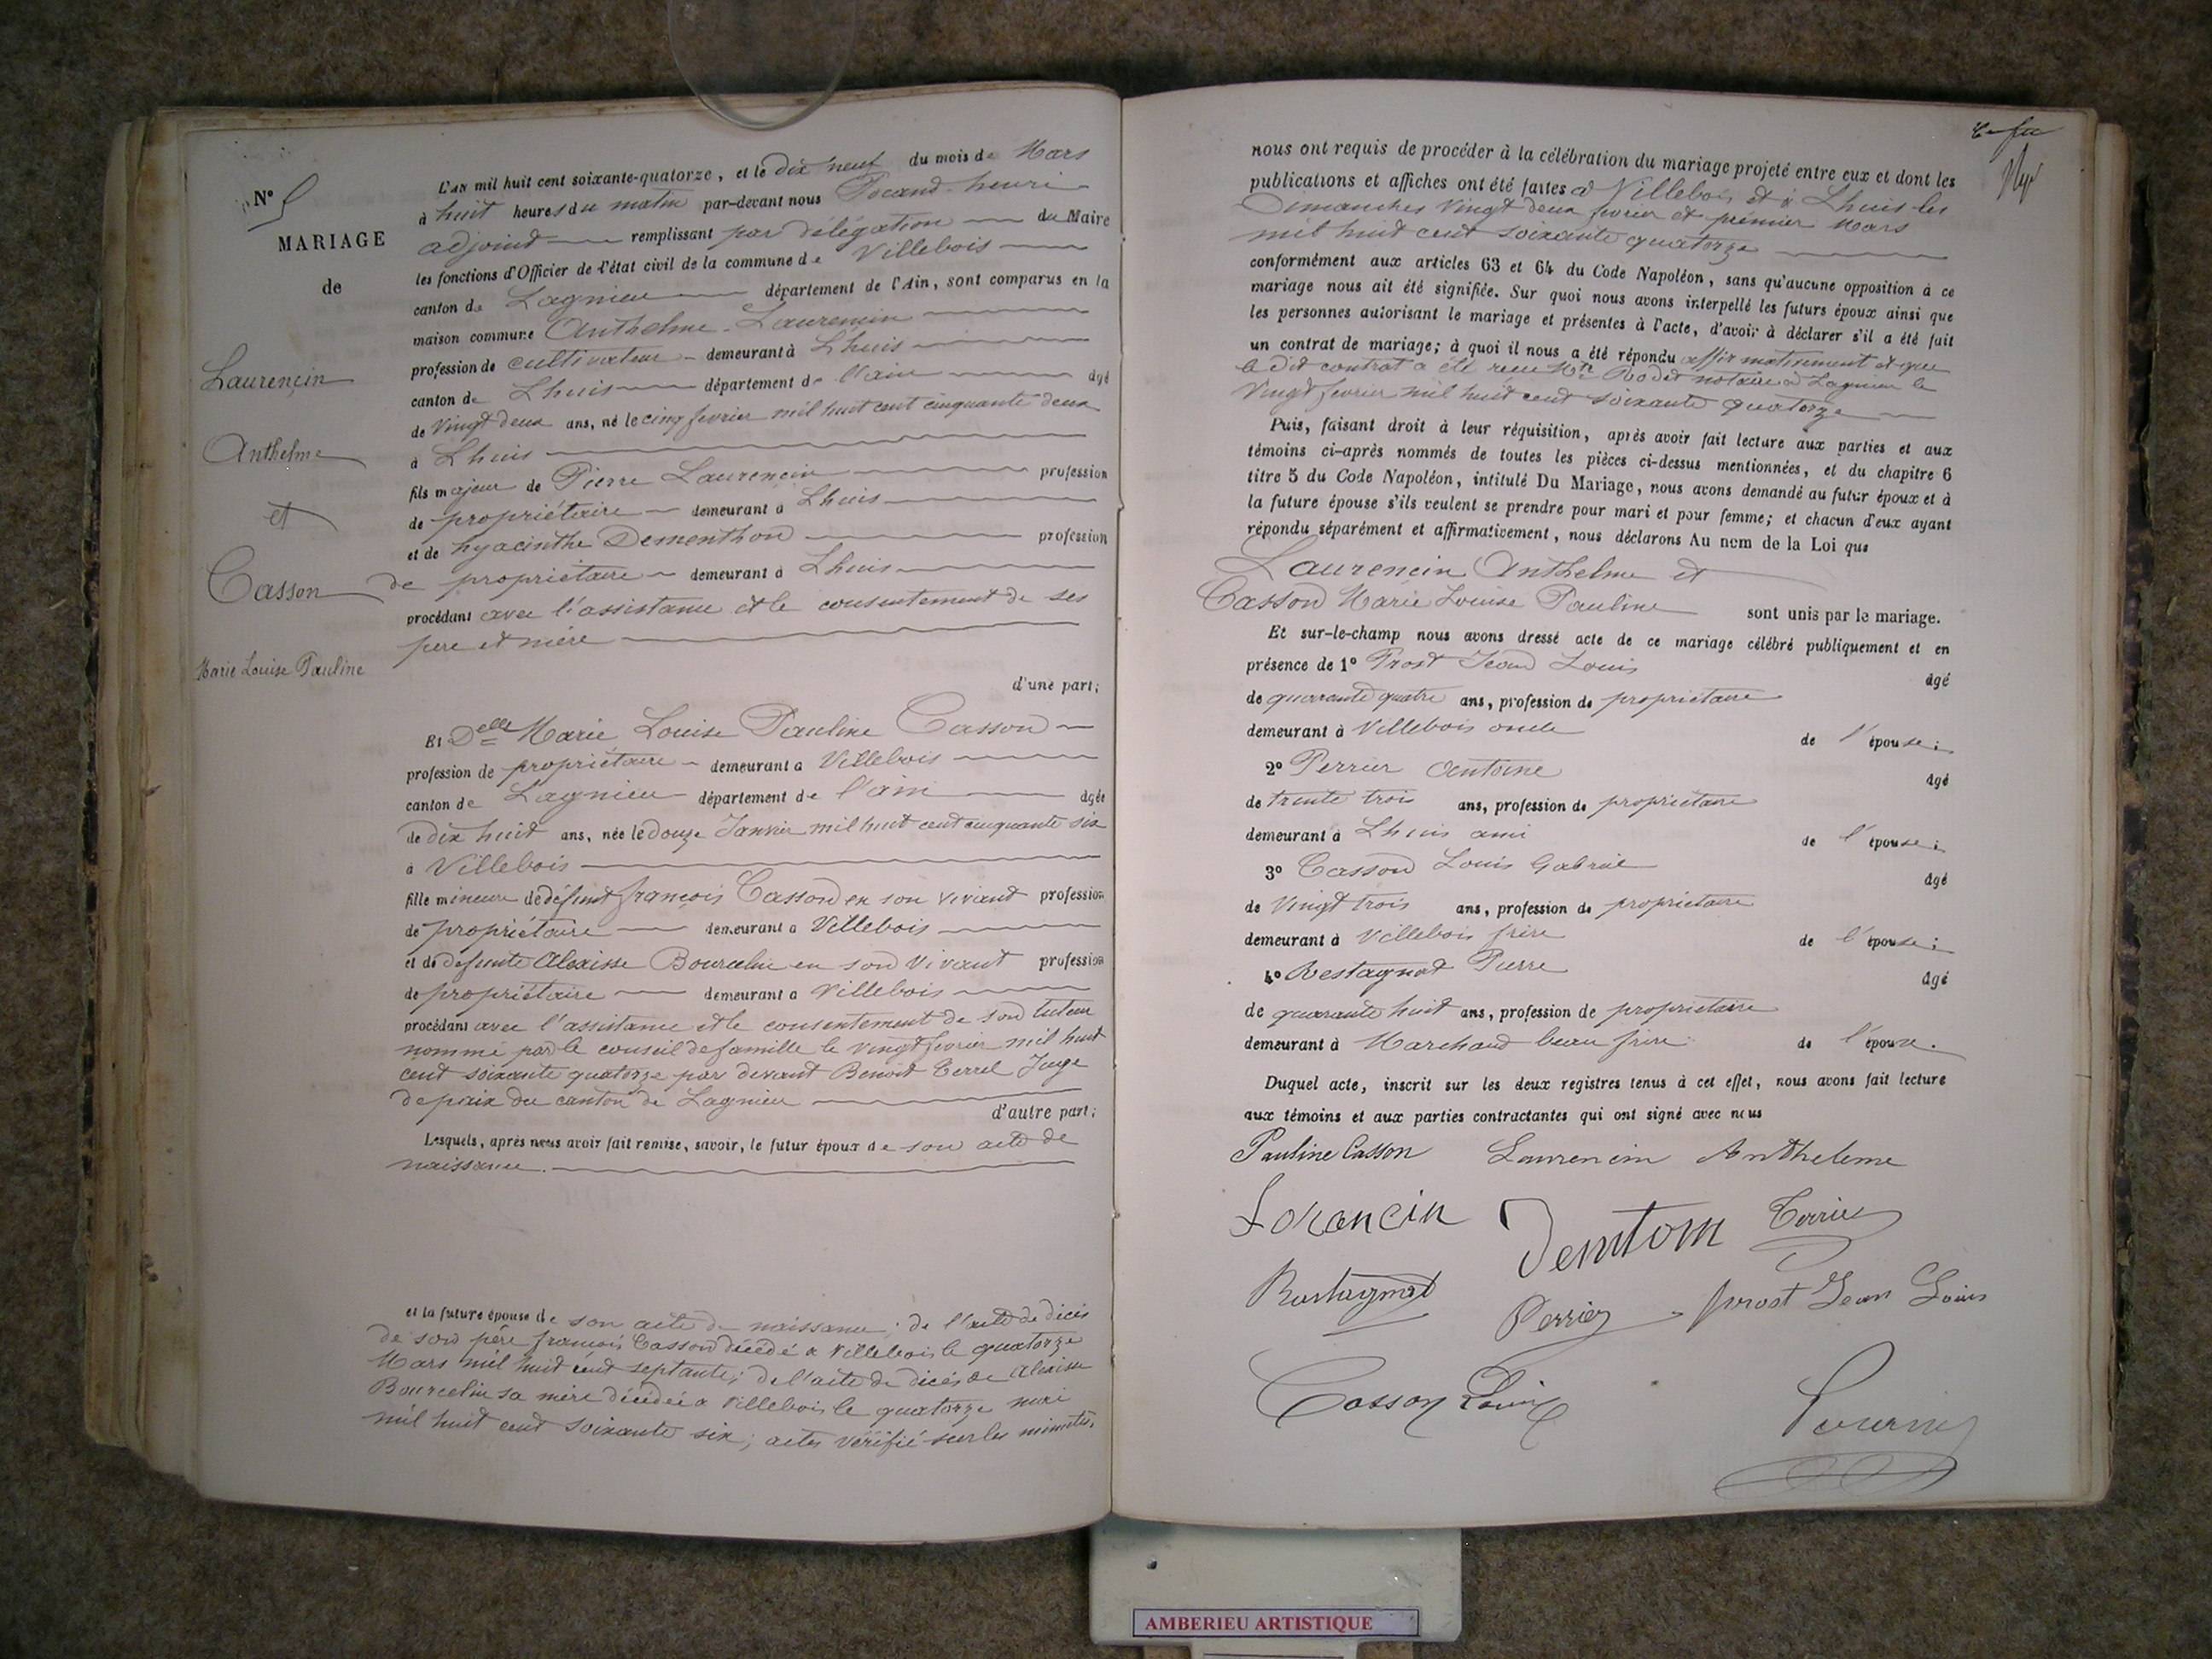 N° 5
MARIAGE
de
Laurencin
Anthelme
et
Casson
Marie Louise Pauline
L'AN mil huit cent soixante-quatorze, et le dix neuf du mois de Mars
à huit heures du matin par-devant nous Pocand henri
adjoint remplissant par délégation du Maire
les fonctions d'Officier de l'état civil de la commune de Villebois
canton de Lagnieu département de l'Ain, sont comparus en la
maison commune Anthelme Laurencin
profession de cultivateur demeurant à Lhuis
canton de Lhuis département de l'ain âgé
de vingt deux ans, né le cinq fevrier mil huit cent cinquante deux
à Lhuis
fils majeur de Pierre Laurencin profession
de propriétaire demeurant à Lhuis
et de hyacinthe Dementhon profession
de propriétaire demeurant à Lhuis
procédant avec l'assistance et le consentement de ses
pere et mère
d'une part;
Et Delle Marie Louise Pauline Casson
profession de propriétaire demeurant à Villebois
canton de Lagnieu département de l'ain âgée
de dix huit ans, née le douze Janvier mil huit cent cinquante six
à Villebois
fille mineure de défunt françois Casson en son vivant profession
de propriétaire demeurant à Villebois
et de defunte Alexisse Bourcelin en son vivant profession
de propriétaire demeurant à Villebois
procédant avec l'assistance et le consentement de son tuteur
nommé par le conseil de famille le vingt fevrier mil huit
cent soixante quatorze par devant Benoit Terrel Juge
de paix du canton de Lagnieu
d'autre part;
Lesquels, après nous avoir fait remise, savoir, le futur époux de son acte de
naissance.
et la future épouse de son acte de naissance; de l'acte de décès
de son père françois Casson décédé à Villebois le quatorze
Mars mil huit cent septante; de l'acte de décès de Alexisse
Bourcelin sa mère décédée à Villebois le quatorze mai
mil huit cent soixante six; actes vérifié sur les minutes,
nous ont requis de procéder à la célébration du mariage projeté entre eux et dont les
publications et affiches ont été faites à Villebois et à Lhuis les
Dimanches vingt deux fevrier et prémier Mars
mil huit cent soixante quatorze
conformément aux articles 63 et 64 du Code Napoléon, sans qu'aucune opposition à ce
mariage nous ait été signifiée. Sur quoi nous avons interpellé les futurs époux ainsi que
les personnes autorisant le mariage et présentes à l'acte, d'avoir à déclarer s'il a été fait
un contrat de mariage; à quoi il nous a été répondu affirmativement et que
le dit contrat a été recu Mtre Rodet notaire à Lagnieu le
vingt fevrier mil huit cent soixante quatorze
Puis, faisant droit à leur réquisition, après avoir fait lecture aux parties et aux
témoins ci-après nommés de toutes les pièces ci-dessus mentionnées, et du chapitre 6
titre 5 du Code Napoléon, intitulé Du Mariage, nous avons demandé au futur époux et à
la future épouse s'ils veulent se prendre pour mari et pour femme; et chacun d'eux ayant
répondu séparément et affirmativement, nous déclarons Au nom de la Loi que
Laurencin Anthelme et
Casson Marie Louise Pauline sont unis par le mariage.
Et sur-le-champ nous avons dressé acte de ce mariage célébré publiquement et en
présence de 1° Prost Jean Louis âgé
de quarante quatre ans, profession de propriétaire
demeurant à Villebois oncle de l'épouse;
2° Perrier Antoine âgé
de trente trois ans, profession de propriétaire
demeurant à Lhuis ami de l'épouse;
3° Casson Louis Gabriel âgé
de vingt trois ans, profession de propriétaire
demeurant à Villebois frère de l'épouse;
4° Restagnat Pierre âgé
de quarante huit ans, profession de propriétaire
demeurant à Marchand beau frère de l'épouse.
Duquel acte, inscrit sur les deux registres tenus à cet effet, nous avons fait lecture
aux témoins et aux parties contractantes qui ont signé avec nous
Pauline Casson Laurencin Anthelme
Lorancin Demtom
Rastagnat Perrier prost Jean Louis
Casson Louis
AMBERIEU ARTISTIQUE